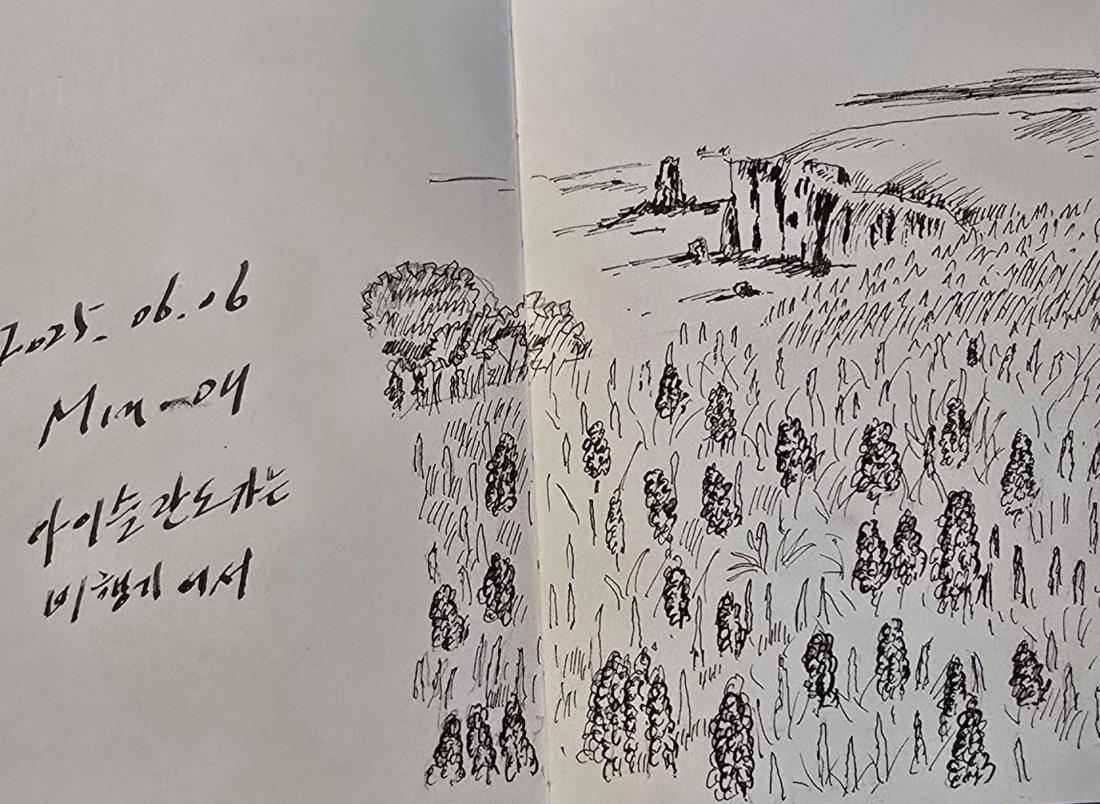 2025. 06. 06
Min-애
아이슬란드가는
비행기에서